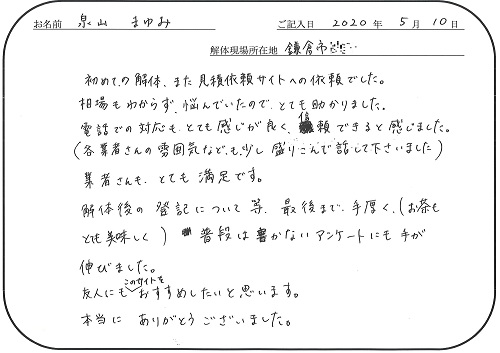 お名前 泉山 まゆみ ご記入日 2020 年 5 月 10 日
解体現場所在地 鎌倉市
初めての解体、また見積依頼サイトへの依頼でした。
相場もわからず、悩んでいたので、とても助かりました。
電話での対応も、とても感じが良く、信頼できると感じました。
(各業者さんの雰囲気なども、少し盛りこんで話して下さいました)
業者さんも、とても満足です。
解体後の登記について等、最後まで手厚く、(お茶も
とても美味しく) 普段は書かないアンケートにも手が
伸びました。
友人にもこのサイトをおすすめしたいと思います。
本当に ありがとうございました。